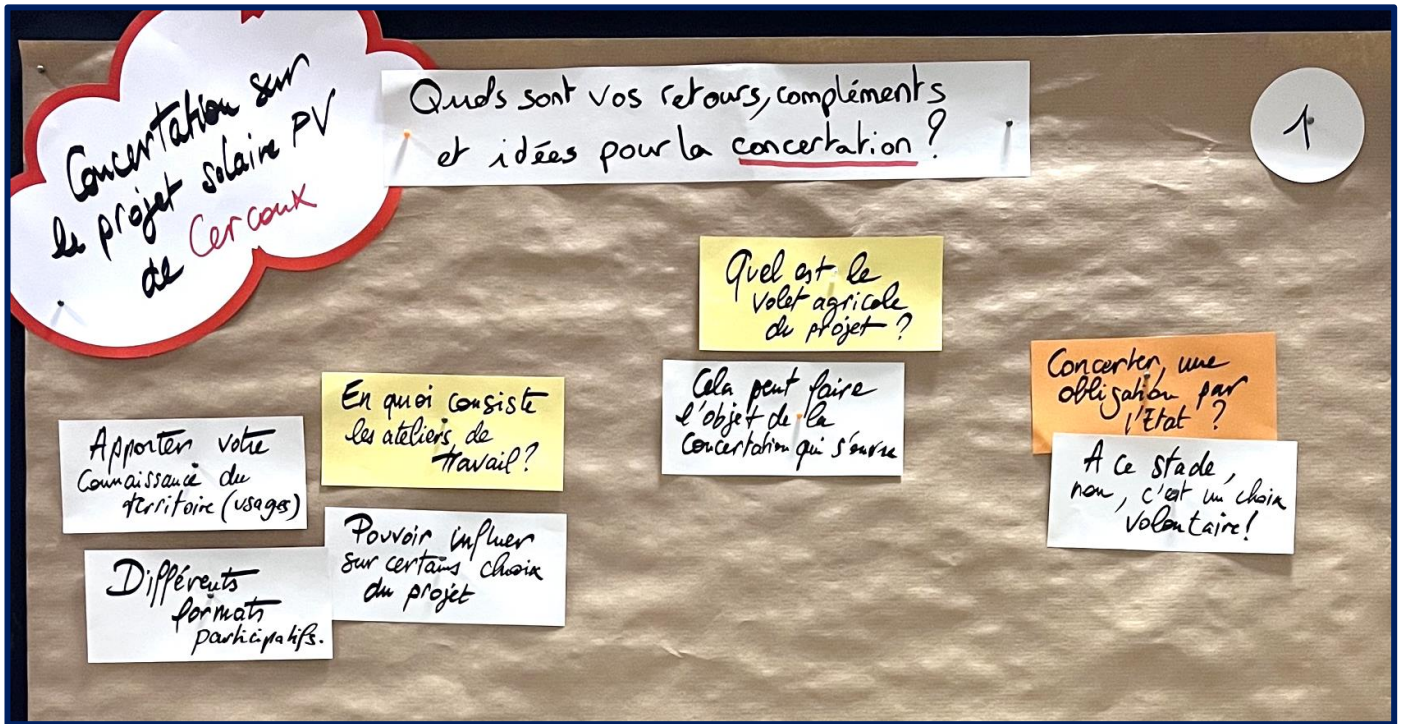 Concertation sur
le projet solaire PV
de Cercoux
Quels sont vos retours, compléments
et idées pour la concertation ?
1
Quel est le
volet agricole
du projet ?
Cela peut faire
l'objet de la
concertation qui s'ouvre
Concerter, une
obligation par
l'Etat ?
A ce stade,
non, c'est un choix
volontaire !
En quoi consiste
les ateliers de
travail ?
Apporter votre
connaissance du
territoire (usages)
Pouvoir influer
sur certains choix
du projet
Différents
formats
participatifs.